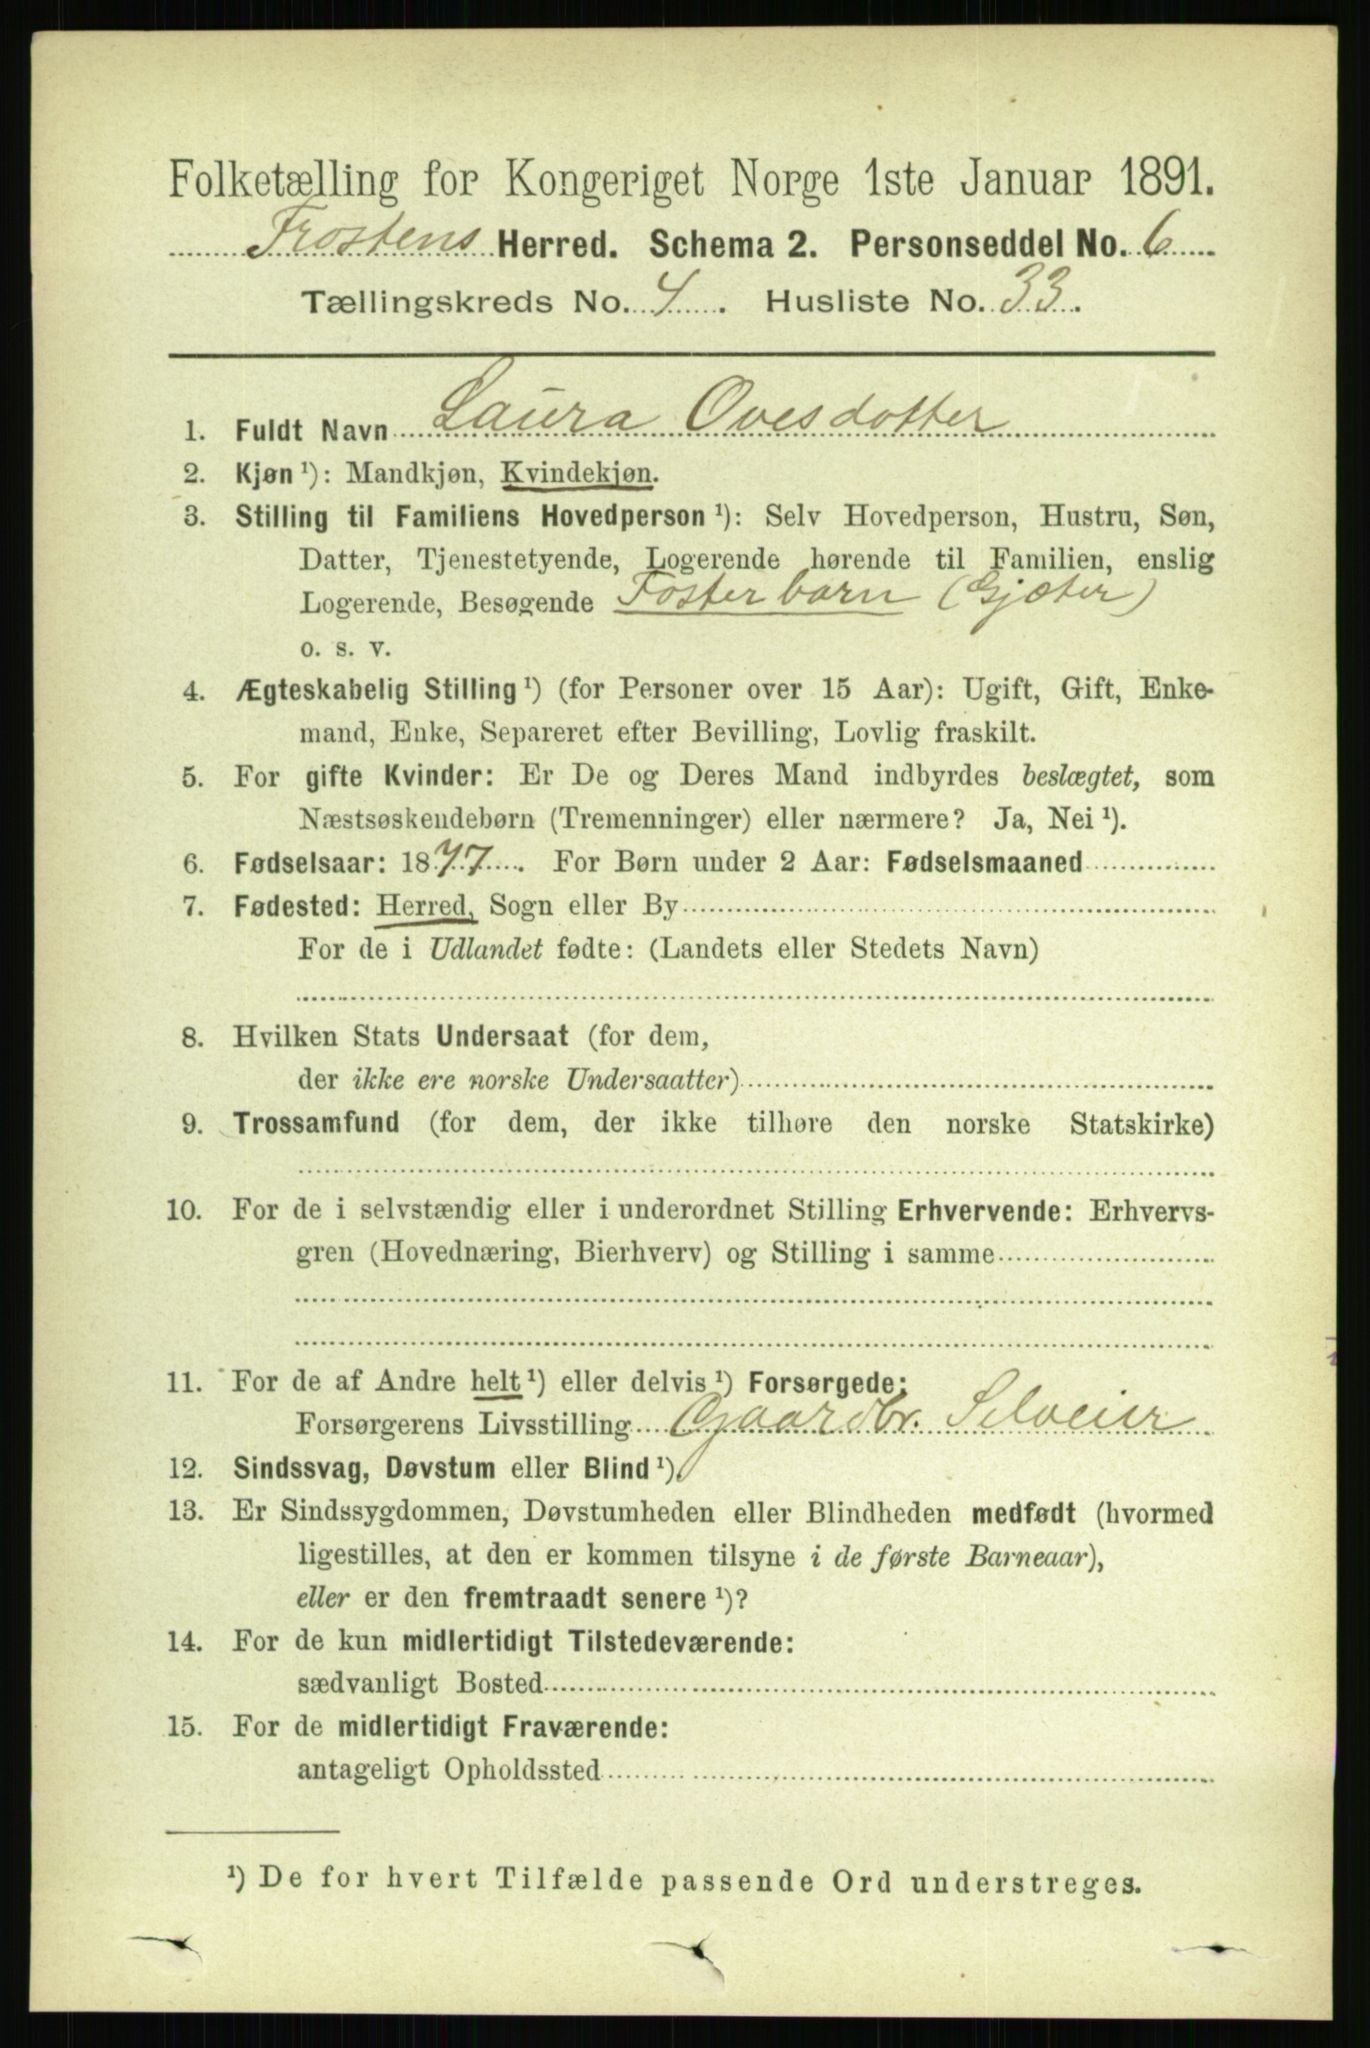 Folketælling for Kongeriget Norge 1ste Januar 1891.
Frostens Herred. Schema 2. Personseddel No. 6
Tællingskreds No. 4. Husliste No. 33.
1. Fuldt Navn Laura Ovesdotter
2. Kjøn ¹): Mandkjøn, Kvindekjøn.
3. Stilling til Familiens Hovedperson ¹): Selv Hovedperson, Hustru, Søn,
Datter, Tjenestetyende, Logerende hørende til Familien, enslig
Logerende, Besøgende Fosterbarn (Gjæter)
o. s. v.
4. Ægteskabelig Stilling ¹) (for Personer over 15 Aar): Ugift, Gift, Enke-
mand, Enke, Separeret efter Bevilling, Lovlig fraskilt.
5. For gifte Kvinder: Er De og Deres Mand indbyrdes beslægtet, som
Næstsøskendebørn (Tremenninger) eller nærmere? Ja, Nei ¹).
6. Fødselsaar: 1877. For Børn under 2 Aar: Fødselsmaaned
7. Fødested: Herred, Sogn eller By
For de i Udlandet fødte: (Landets eller Stedets Navn)
8. Hvilken Stats Undersaat (for dem,
der ikke ere norske Undersaatter)
9. Trossamfund (for dem, der ikke tilhøre den norske Statskirke)
10. For de i selvstændig eller i underordnet Stilling Erhvervende: Erhvervs-
gren (Hovednæring, Bierhverv) og Stilling i samme
11. For de af Andre helt ¹) eller delvis ¹) Forsørgede:
Forsørgerens Livsstilling Gaardbr. Selveier
12. Sindssvag, Døvstum eller Blind ¹).
13. Er Sindssygdommen, Døvstumheden eller Blindheden medfødt (hvormed
ligestilles, at den er kommen tilsyne i de første Barneaar),
eller er den fremtraadt senere ¹)?
14. For de kun midlertidigt Tilstedeværende:
sædvanligt Bosted
15. For de midlertidigt Fraværende:
antageligt Opholdssted
¹) De for hvert Tilfælde passende Ord understreges.